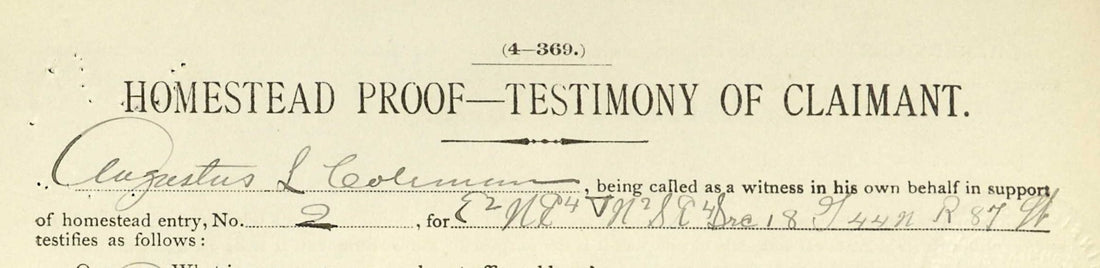 (4—369.)
HOMESTEAD PROOF—TESTIMONY OF CLAIMANT.
Augustus L Coleman, being called as a witness in his own behalf in support
of homestead entry, No. 2, for E2 NE4 & N2 SE4 Sec 18 T 44N R 87 W
testifies as follows: